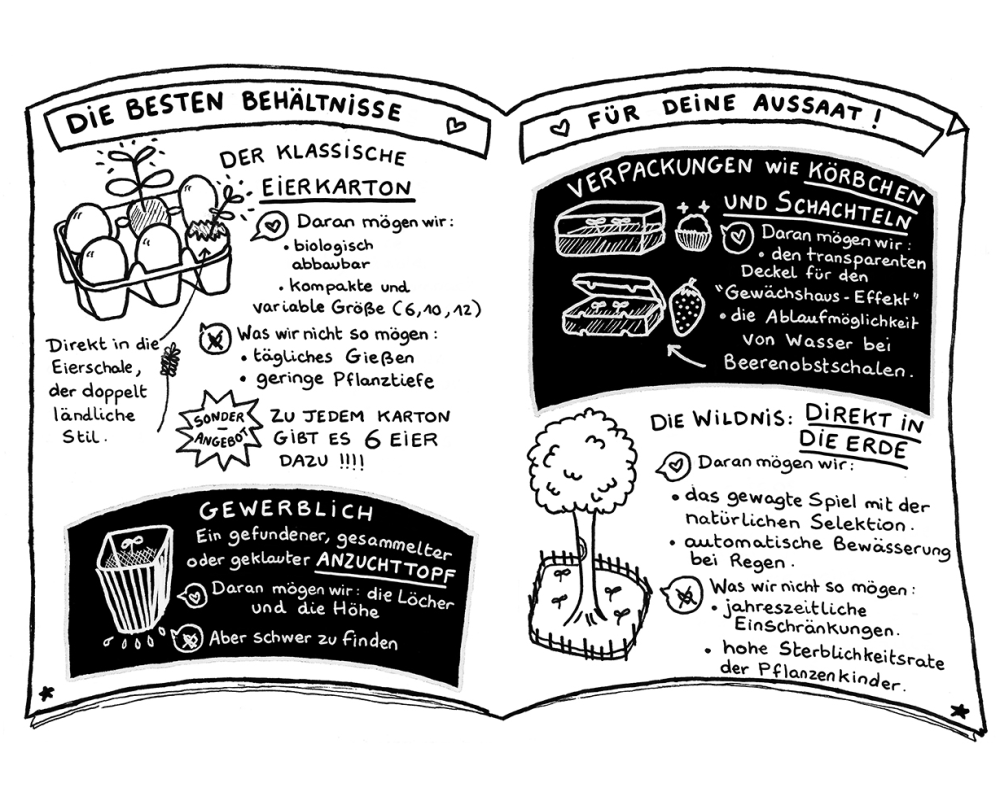 DIE BESTEN BEHÄLTNISSE
DER KLASSISCHE
EIERKARTON
Daran mögen wir:
• biologisch
abbaubar
• kompakte und
variable Größe (6, 10, 12)
Was wir nicht so mögen:
• tägliches Gießen
• geringe Pflanztiefe
Direkt in die
Eierschale,
der doppelt
ländliche
Stil.
SONDER-
ANGEBOT
ZU JEDEM KARTON
GIBT ES 6 EIER
DAZU !!!!
GEWERBLICH
Ein gefundener, gesammelter
oder geklauter ANZUCHTTOPF
Daran mögen wir: die Löcher
und die Höhe
Aber schwer zu finden
FÜR DEINE AUSSAAT!
VERPACKUNGEN WIE KÖRBCHEN
UND SCHACHTELN
Daran mögen wir:
• den transparenten
Deckel für den
"Gewächshaus-Effekt"
• die Ablaufmöglichkeit
von Wasser bei
Beerenobstschalen.
DIE WILDNIS: DIREKT IN
DIE ERDE
Daran mögen wir:
• das gewagte Spiel mit der
natürlichen Selektion.
• automatische Bewässerung
bei Regen.
Was wir nicht so mögen:
• jahreszeitliche
Einschränkungen.
• hohe Sterblichkeitsrate
der Pflanzenkinder.